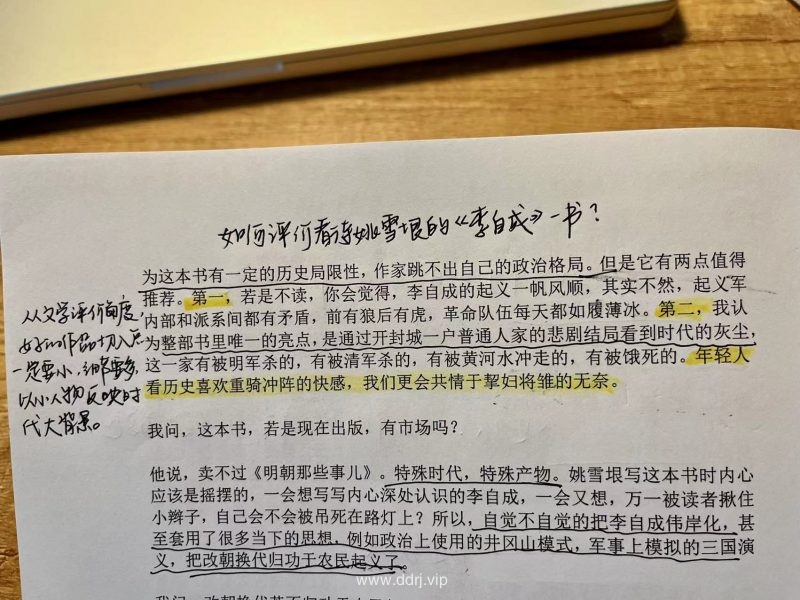 如何评价看待姚雪垠的《李自成》一书？
为这本书有一定的历史局限性，作家跳不出自己的政治格局。但是它有两点值得
推荐。第一，若是不读，你会觉得，李自成的起义一帆风顺，其实不然，起义军
内部和派系间都有矛盾，前有狼后有虎，革命队伍每天都如履薄冰。第二，我认
为整部书里唯一的亮点，是通过开封城一户普通人家的悲剧结局看到时代的灰尘，
这一家有被明军杀的，有被清军杀的，有被黄河水冲走的，有被饿死的。年轻人
看历史喜欢重骑冲阵的快感，我们更会共情于挈妇将雏的无奈。
从文学评价角度，
好的作品切入点
一定要小，细节要多
以小人物反映时
代大背景。
我问，这本书，若是现在出版，有市场吗？
他说，卖不过《明朝那些事儿》。特殊时代，特殊产物。姚雪垠写这本书时内心
应该是摇摆的，一会想写写内心深处认识的李自成，一会又想，万一被读者揪住
小辫子，自己会不会被吊死在路灯上？所以，自觉不自觉的把李自成伟岸化，甚
至套用了很多当下的思想，例如政治上使用的井冈山模式，军事上模拟的三国演
义，把改朝换代归功于农民起义了。
www.ddrj.vip